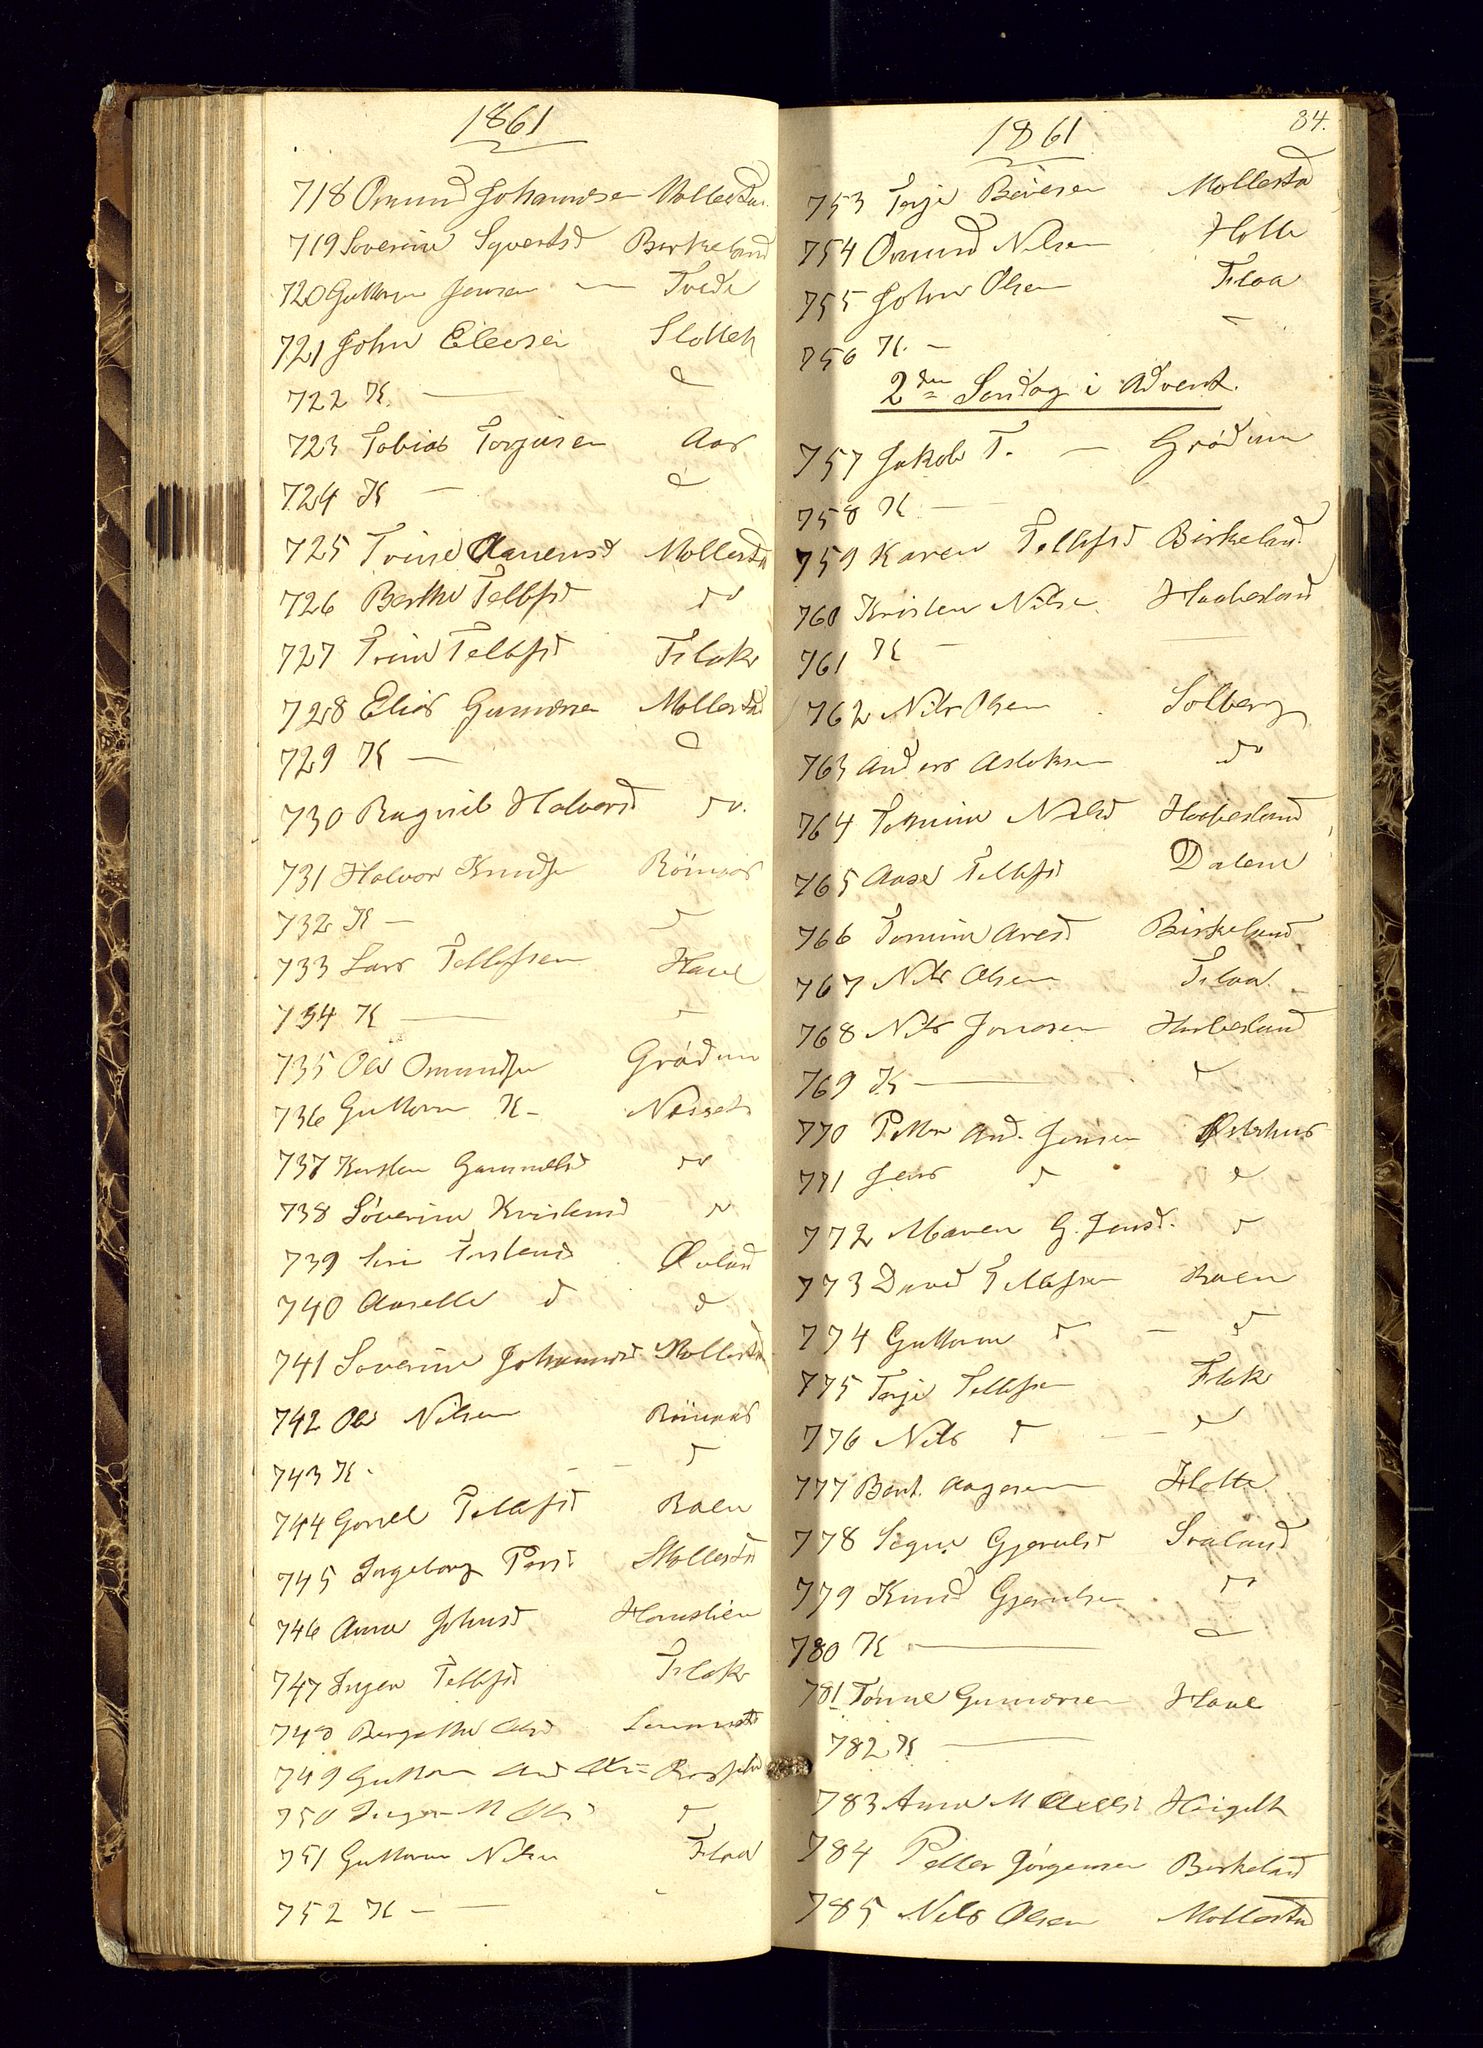 1861
718 Omund Johannesen Mollestad
719 Severine Syvertsd Birkeland
720 Guttorm Jensen — Tvede
721 John Elevsen Slottet
722 K. — d
723 Tobias Torjusen Aas
724 K — d
725 Trine Aanensd Mollestad
726 Berthe Tellefsd do
727 Trine Tellefsd Flak
728 Elias Gundersen Mollestad
729 K — d
730 Ragnil Halvorsd do.
731 Halvor Knudsen Röinaas
732 K — d
733 Lars Tellefsen Have
734 K —
735 Ole Omundsen Grødum
736 Guttorm K - Næsset
737 Kirsten Gummelsd do
738 Søverine Kristensd do
739 Siri Torstensd Øvland
740 Aaselle d d
741 Severine Johannesd Mollestad
742 Ole Nilsen Röinaas
743 K. — d
744 Gonel Tellefsd Raen
745 Ingeborg Persd Mollestad
746 Anne Johnsd Hamslien
747 Inger Tellefsd Flak
748 Bergithe Olsd
749 Guttorm And Olsen
750 Inger M Olsd d
751 Guttorm Nilsen Floa
752 K — —
84.
1861
753 Terje Bövesen Mollestad
754 Omund Nilsen Holte
755 John Olsen Floa
756 K. —
2den Søndag i Advent.
757 Jakob T. — Grødum
758 K —
759 Karen Tellefsd Birkeland
760 Kristen Nilsen Haabesland
761 K —
762 Nils Olsen Solberg
763 Anders Aslaksen do
764 Tomine Nilsd Haabesland
765 Aase Tellefsd Dalene
766 Tomine Aresd Birkeland
767 Nils Olsen Floa
768 Nils Jonasen Haabesland
769 K — d
770 Petter And. Jensen Østerhus
771 Jens d d
772 Maren G. Jensd. d
773 David Tellefsen Raen
774 Guttorm d — d
775 Terje Tellefsen Flak
776 Nils d — d
777 Bent Aagesen Holte
778 Signe Gjerulsd Svaland
779 Knud Gjerulsen do
780 K — d
781 Tönnes Gundersen Have
782 K —
783 Anne M Haigelt
784 Petter Jörgensen Birkeland
785 Nils Olsen Mollestad